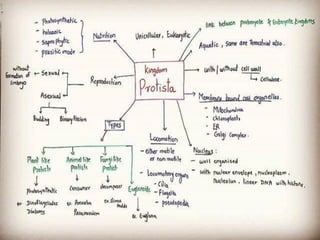 Kingdom
Protista
Unicellular, Eukaryotic
link between prokaryote & Eukaryote kingdoms
Aquatic, Some are terrestrial also.
with/without cell wall
Cellulose.
Membrane bound cell organelles.
- Mitochondria
- Chloroplasts
- ER
- Golgi Complex.
Nucleus :
- well organised
- with nuclear envelope, nucleoplasm,
nucleolus, linear DNA with histone.
Locomotion
- either motile
or non motile
- Locomotory organs
- Cilia
- Flagella
- pseudopodia
Types
Plant like
Protists
Animal like
protists
Fungi like
protist
Euglenoids
Photosynthetic
Consumer
decomposer
ex Dinoflagellates
Diatoms
ex Amoeba
Paramoecium
ex. Slime
moulds
ex Euglena
Reproduction
- Sexual
without
formation of
Embryo
Asexual
Budding
Binary fission
Nutrition
- Photosynthetic
- holozoic
- Saprophytic
- parasitic mode